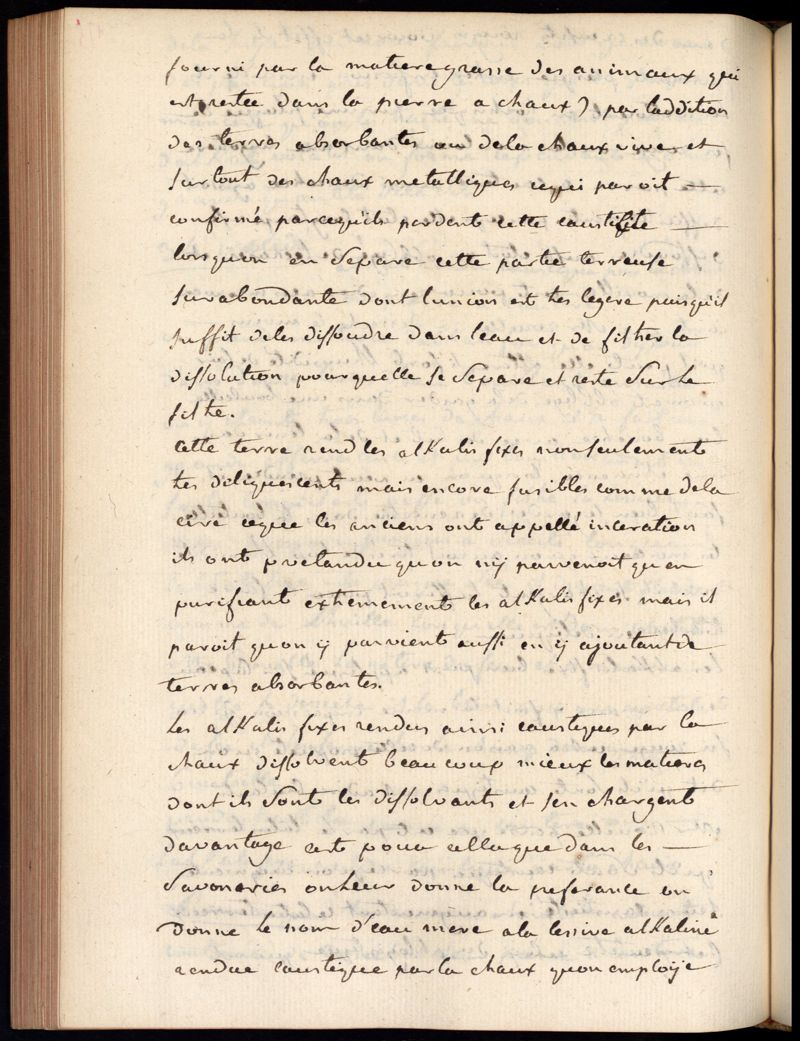 fourni par la matiere grasse des animaux qui
est restée dans la pierre a chaux) par laddition
des terres absorbantes ou dela chaux vive et
surtout des chaux metalliques cequi paroit —
confirmé parcequils perdent cette causticité —
lorsquon en separe cette partie terreuse
surabondante dont lunion est tres legere puisquil
suffit deles dissoudre dans leau et de filtrer la
dissolution pourquelle se separe et reste sur le
filtre.
cette terre rend les alkalis fixes nonseulement
tres deliquescents mais encore fusibles comme dela
cire ceque les anciens ont appellé inceration
ils ont pretendu quon nÿ parvenoit quen
purifiant extremement les alkalis fixes mais il
paroit quon ÿ parvient aussi en ÿ ajoutant de
terres absorbantes.
Les alkalis fixes rendus ainsi caustiques par la
chaux dissolvent beaucoup mieux les matieres
dont ils sont les dissolvants et sen chargent
davantage cest pour cella que dans les —
savoneries on leur donne la preferance on
donne le nom d'eau mere a la lessive alkaline
rendue caustique par la chaux quon emploÿe